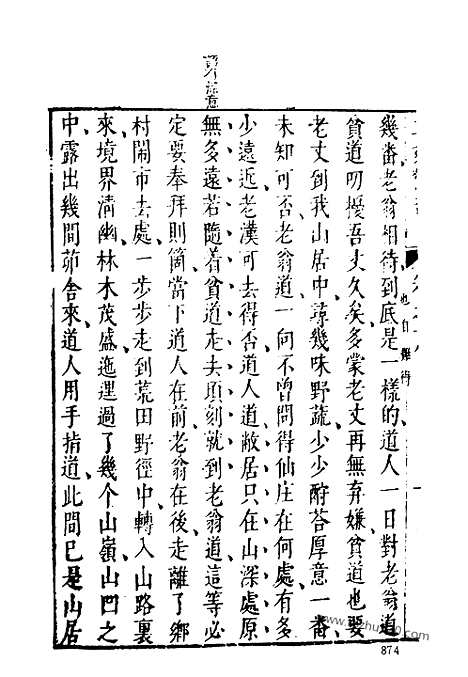 幾番老翁相待到底是一樣的道人一日對老翁道
也自難得
貧道叨擾吾丈久矣多蒙老丈再無弃嫌貧道也要
老丈到我山居中尋幾味野蔬少少酧荅厚意一番
未知可否老翁道一向不曾問得仙庄在何處有多
少遠近老漢可去得否道人道敝居只在山深處原
無多遠若隨着貧道走去頃刻就到老翁道這等必
定要奉拜則箇當下道人在前老翁在後走離了鄉
村鬧市去處一步步走到荒田野徑中轉入山路裏
來境界清幽林木茂盛迤邐過了幾个山嶺山凹之
中露出幾間茆舍來道人用手指道此間已是山居
874